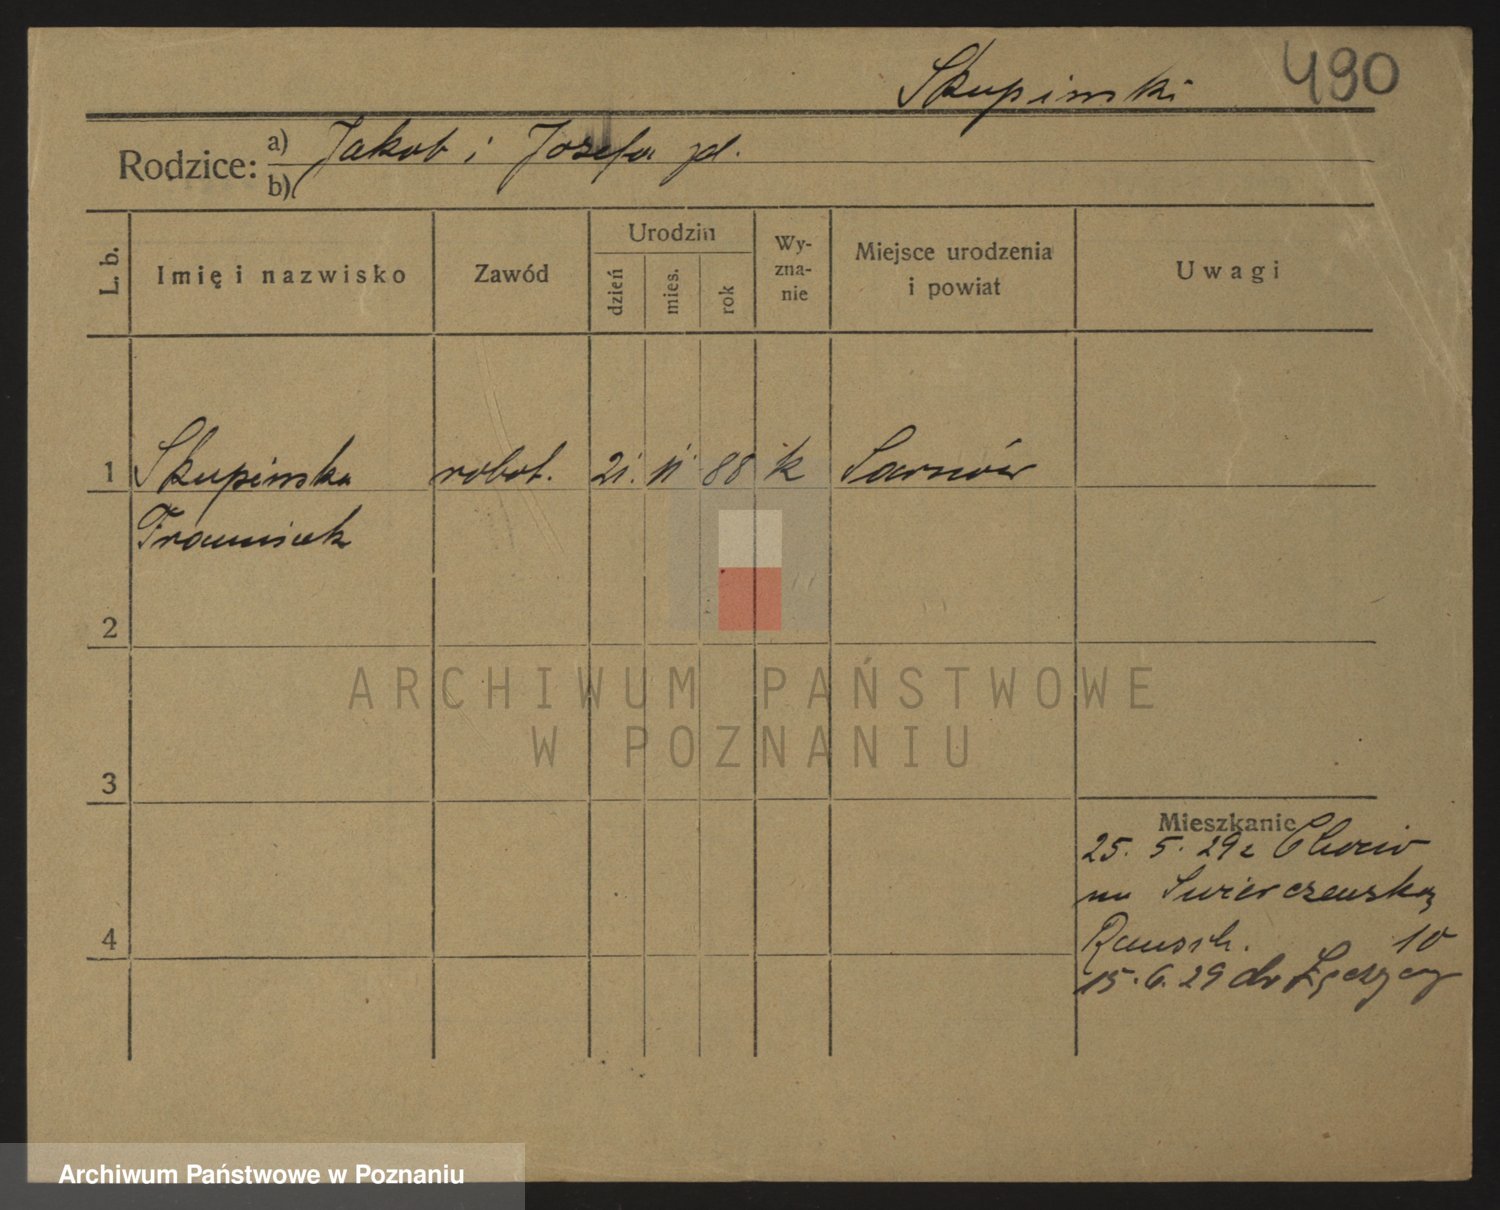 Skupinski 490
Rodzice: a) Jakob i Josefa
b)
L. b. Imię i nazwisko Zawód Urodzin dzień mies. rok Wyznanie Miejsce urodzenia i powiat Uwagi
1 Skupinska robot. 21. 11 88 k Sarnów
Franusiek
2
ARCHIWUM PAŃSTWOWE
W POZNANIU
3
Mieszkanie
25. 5. 29
10
4
15. 6. 29 do Łęczycy
Archiwum Państwowe w Poznaniu